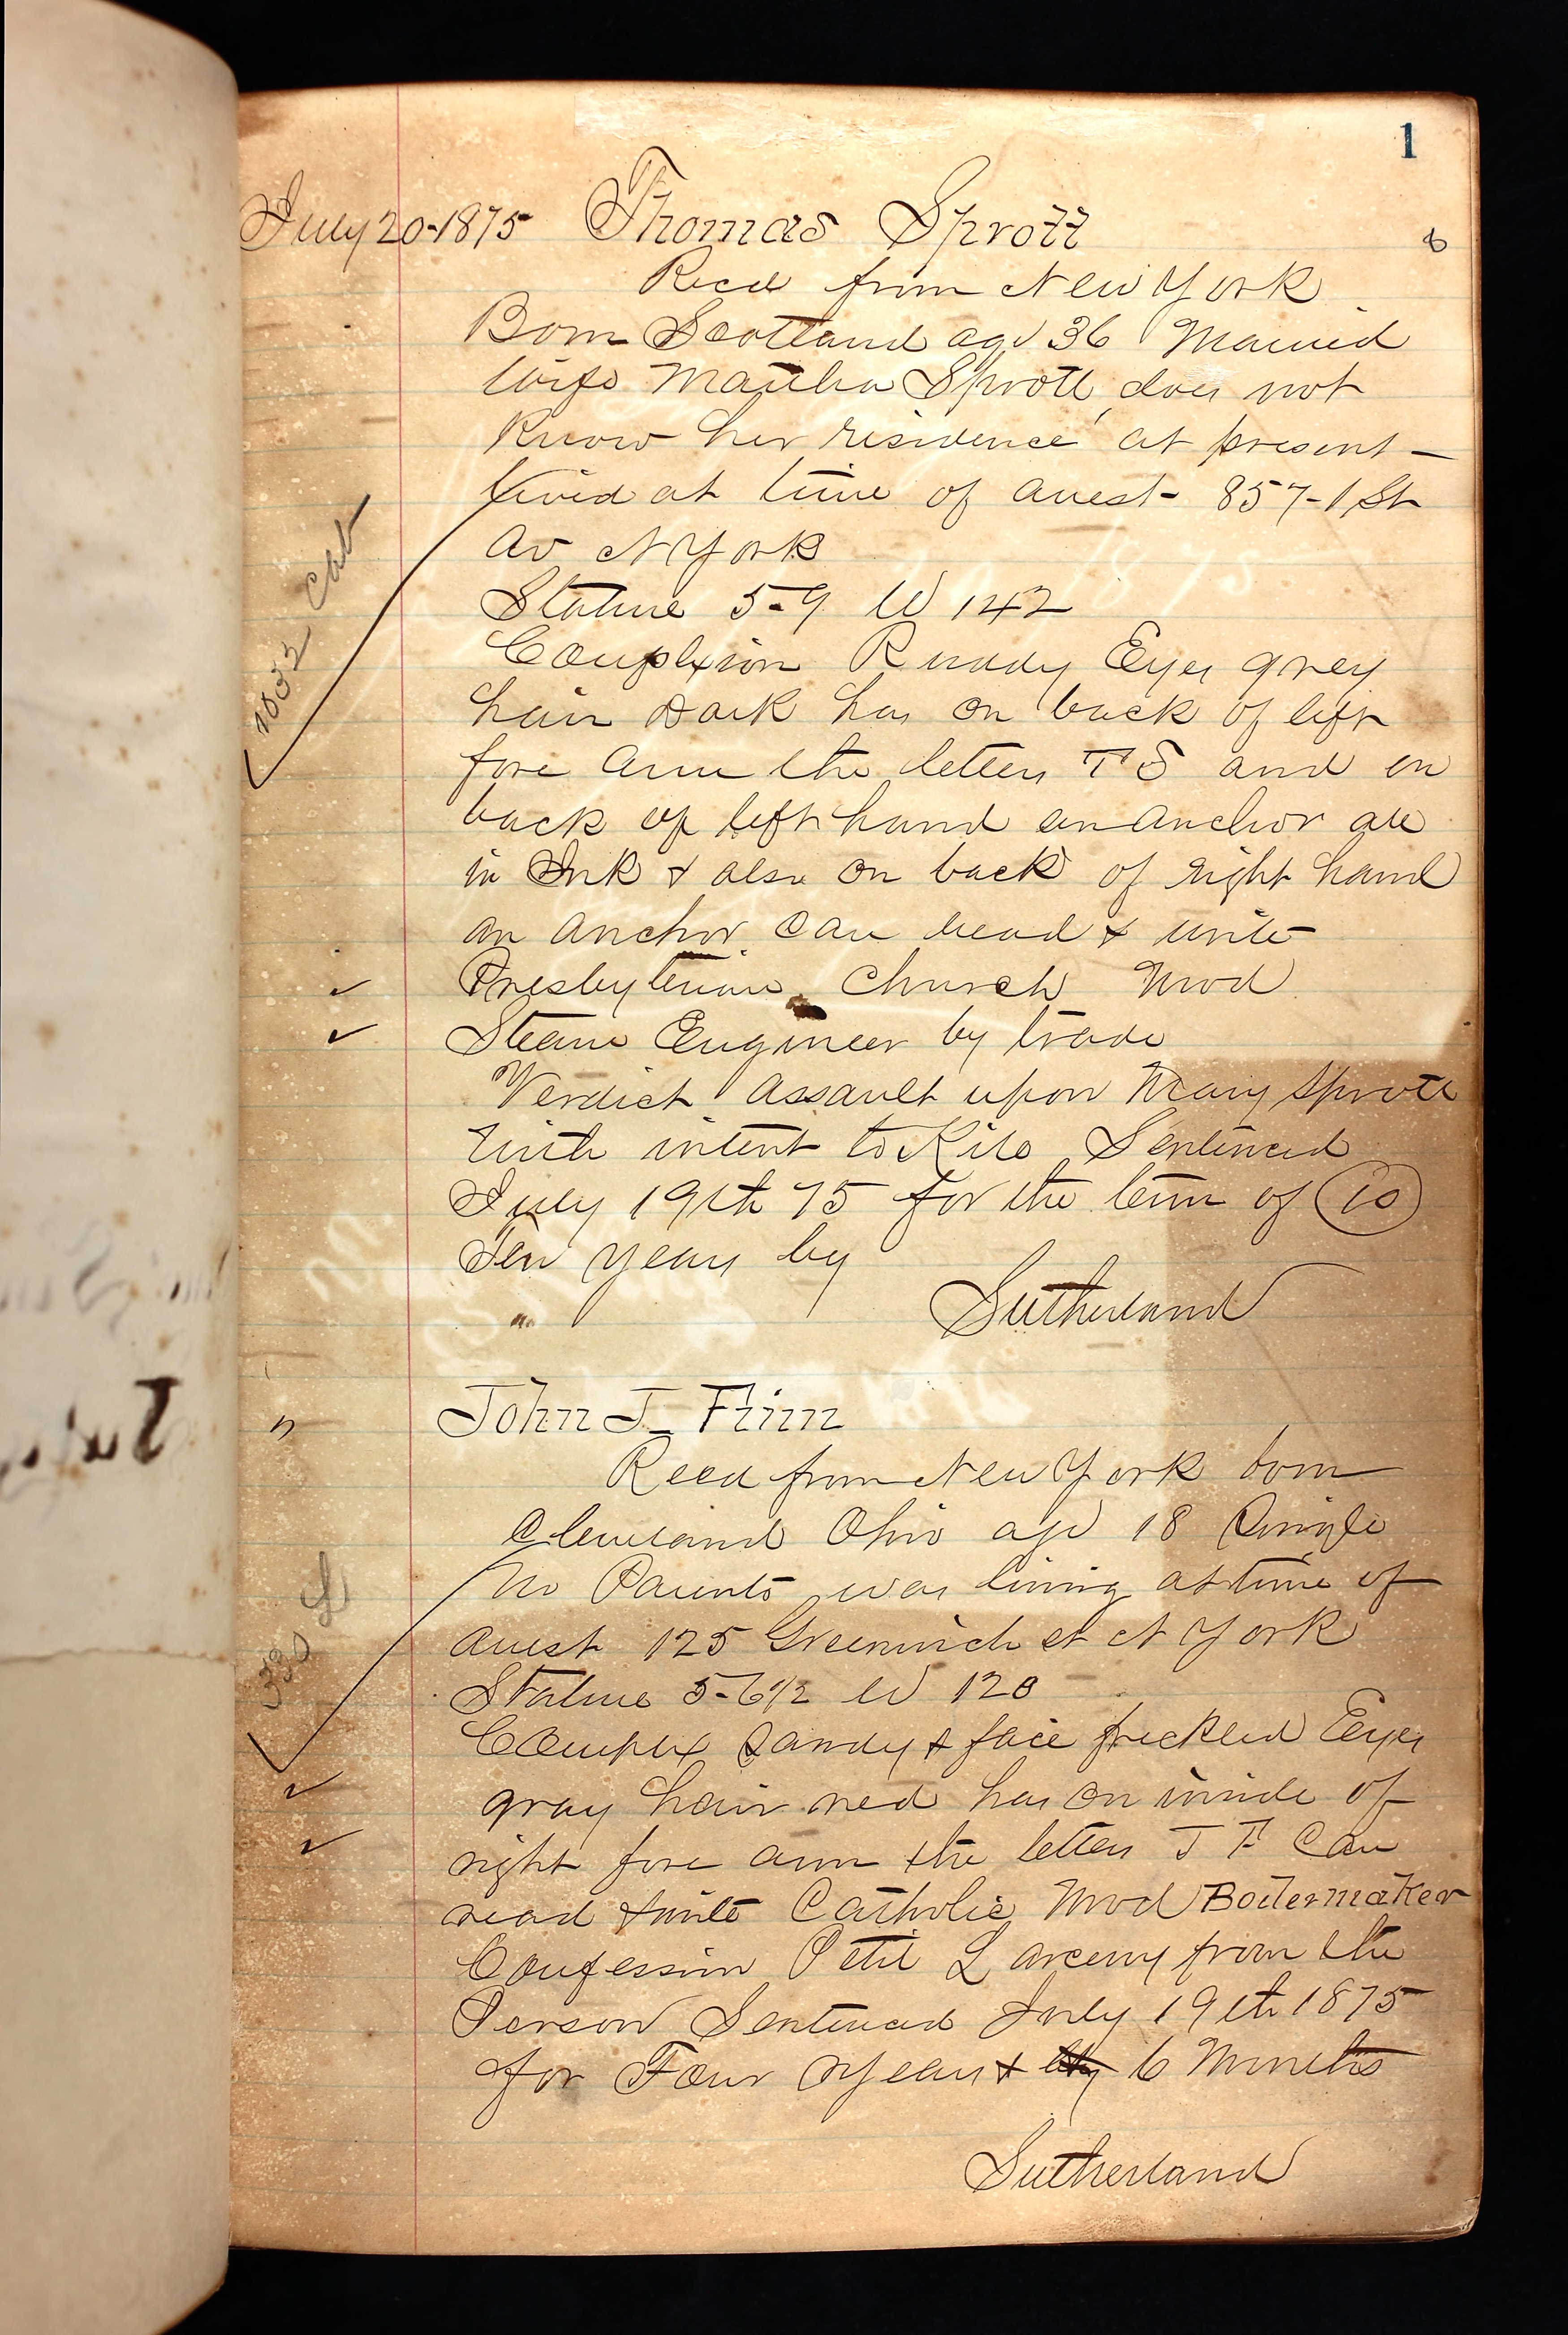 1
July 20-1875 Thomas Sprott
8
Recd from New York
Born Scotland age 36 Married
Wife Martha Sprott, does not
Know her residence at present –
Lived at time of arrest – 857-1 St
Av N York
Stature 5-9 W 142
Complexion Ruddy Eyes grey
hair Dark has on back of left
fore arm the letters T S and on
back of left hand an anchor all
in Ink & also on back of right hand
an anchor Can read & write
Presbyterian Church Mod
Steam Engineer by trade
Verdict Assault upon Mary Sprott
with intent to Kill Sentenced
July 19th 75 for the term of 10
Ten years by
Sutherland
John J_ Flinn
Recd from New York born
Cleveland Ohio age 18 Single
No Parents was living at time of
arrest 125 Greenwich st N York
Stature 5-6 1/2 W 128
Complex Sandy & face freckled Eyes
gray hair red has on inside of
right fore arm the letters J F Can
read & write Catholic Mod Boilermaker
Confession Petit Larceny from the
Person Sentenced July 19th 1875
for Four years & 6 Months
Sutherland